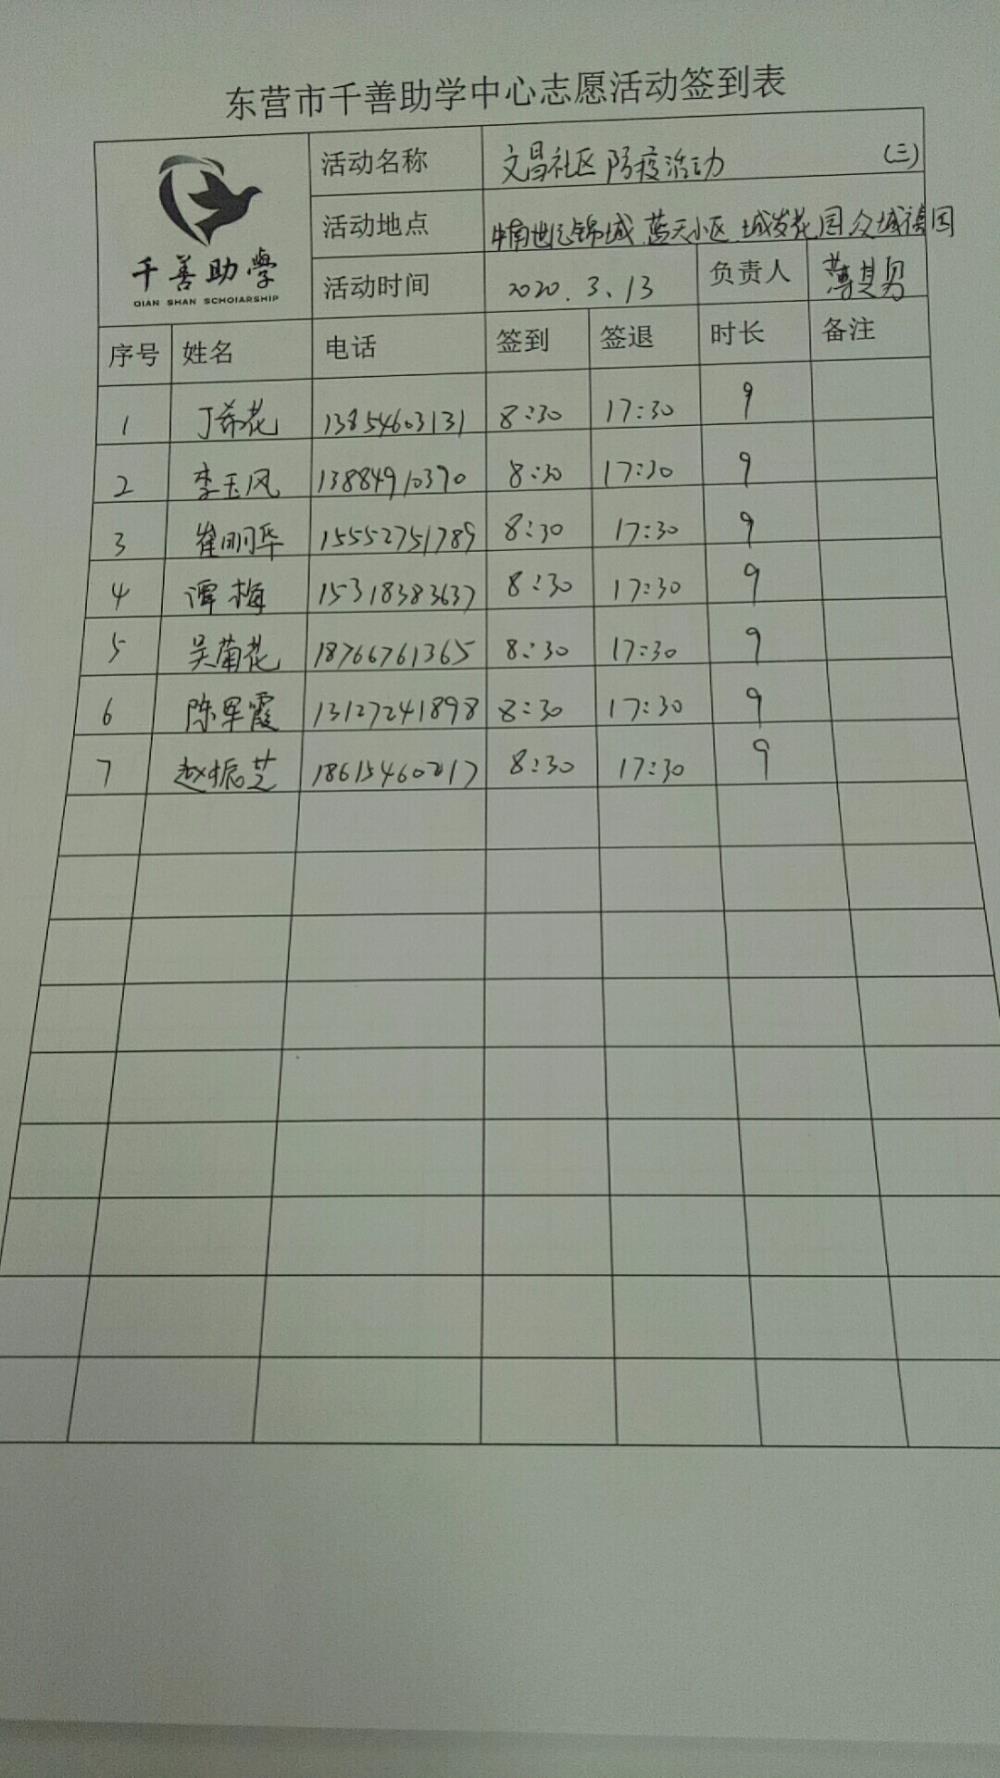 东营市千善助学中心志愿活动签到表
千善助學
QIAN SHAN SCHOIARSHIP
活动名称 文昌社区防疫活动 (三)
活动地点 锦城 蓝天小区 城发花园 众城德园
活动时间 2020.3.13 负责人 薄其男
序号 姓名 电话 签到 签退 时长 备注
1 丁希花 13854603131 8:30 17:30 9
2 李玉风 13884910370 8:30 17:30 9
3 崔明华 15552751789 8:30 17:30 9
4 谭梅 15318383637 8:30 17:30 9
5 吴菊花 18766761365 8:30 17:30 9
6 陈军霞 13127241898 8:30 17:30 9
7 赵振芝 18615460217 8:30 17:30 9